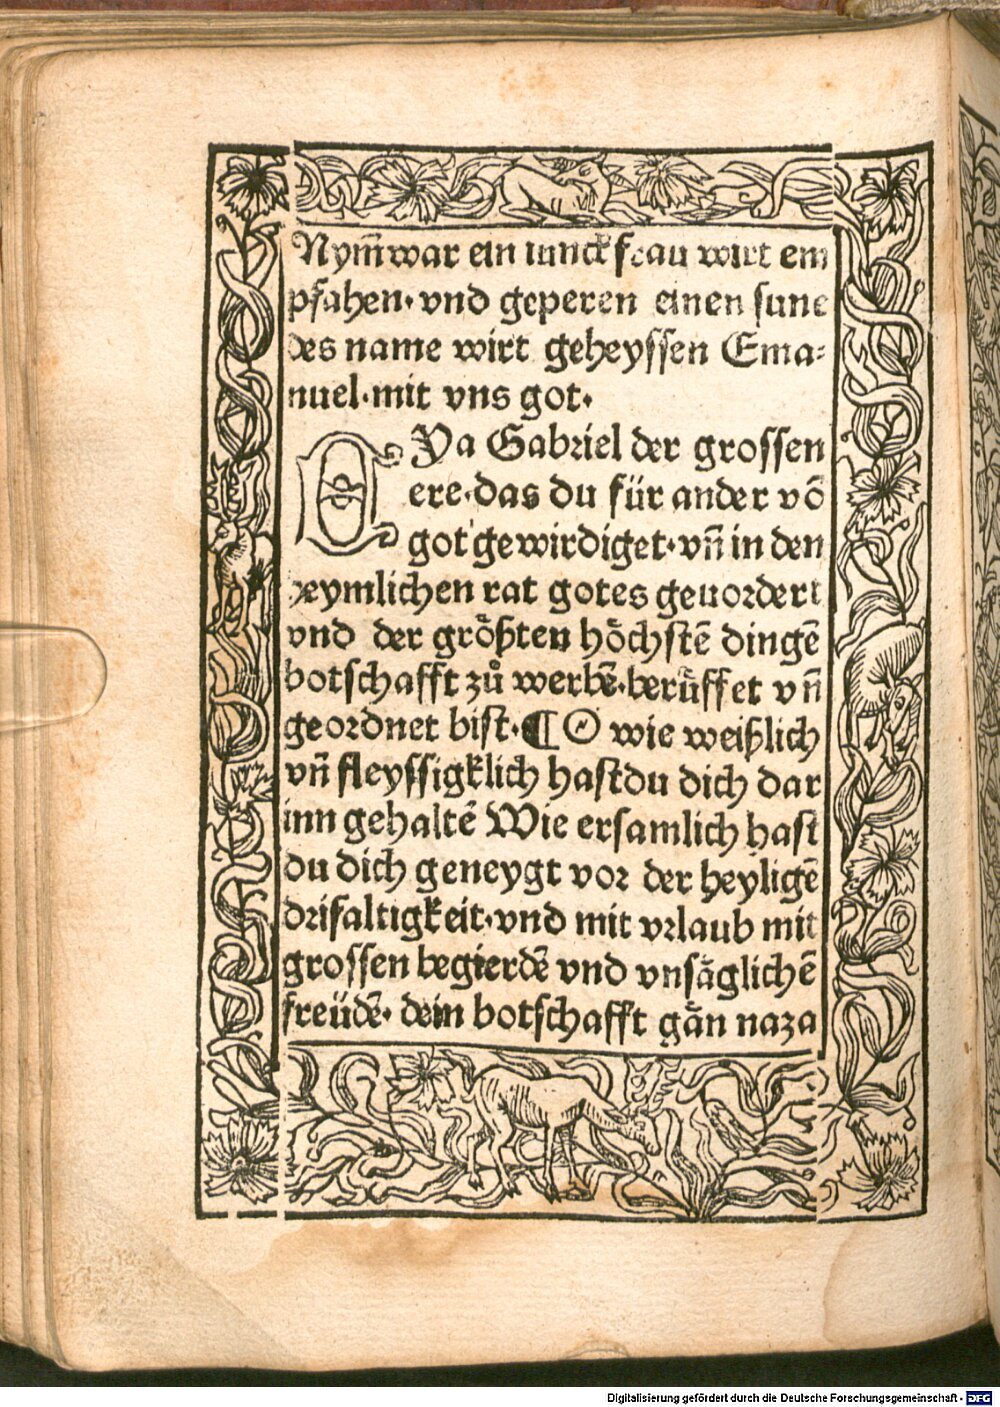 Nym̄war ein iunckfrau wirt em
pfahen· vnd geperen einen sune
des name wirt geheyssen Ema⸗
nuel·mit vns got·
O Ya Gabriel der grossen
ere·das du für ander võ
got gewirdiget·vn̄ in den
heymlichen rat gotes geuordert
vnd der größten höchstē dingē
botschafft zů werbē·berůffet vn̄
geordnet bist·¶ O wie weißlich
vn̄ fleyssigklich hastdu dich dar
inn gehaltē Wie ersamlich hast
du dich geneygt vor der heyligē
drifaltigkeit·vnd mit vrlaub mit
grossen begierdē vnd vnsäglichē
freüdē· dein botschafft gǎn naza
Digitalisierung gefördert durch die Deutsche Forschungsgemeinschaft - DFG